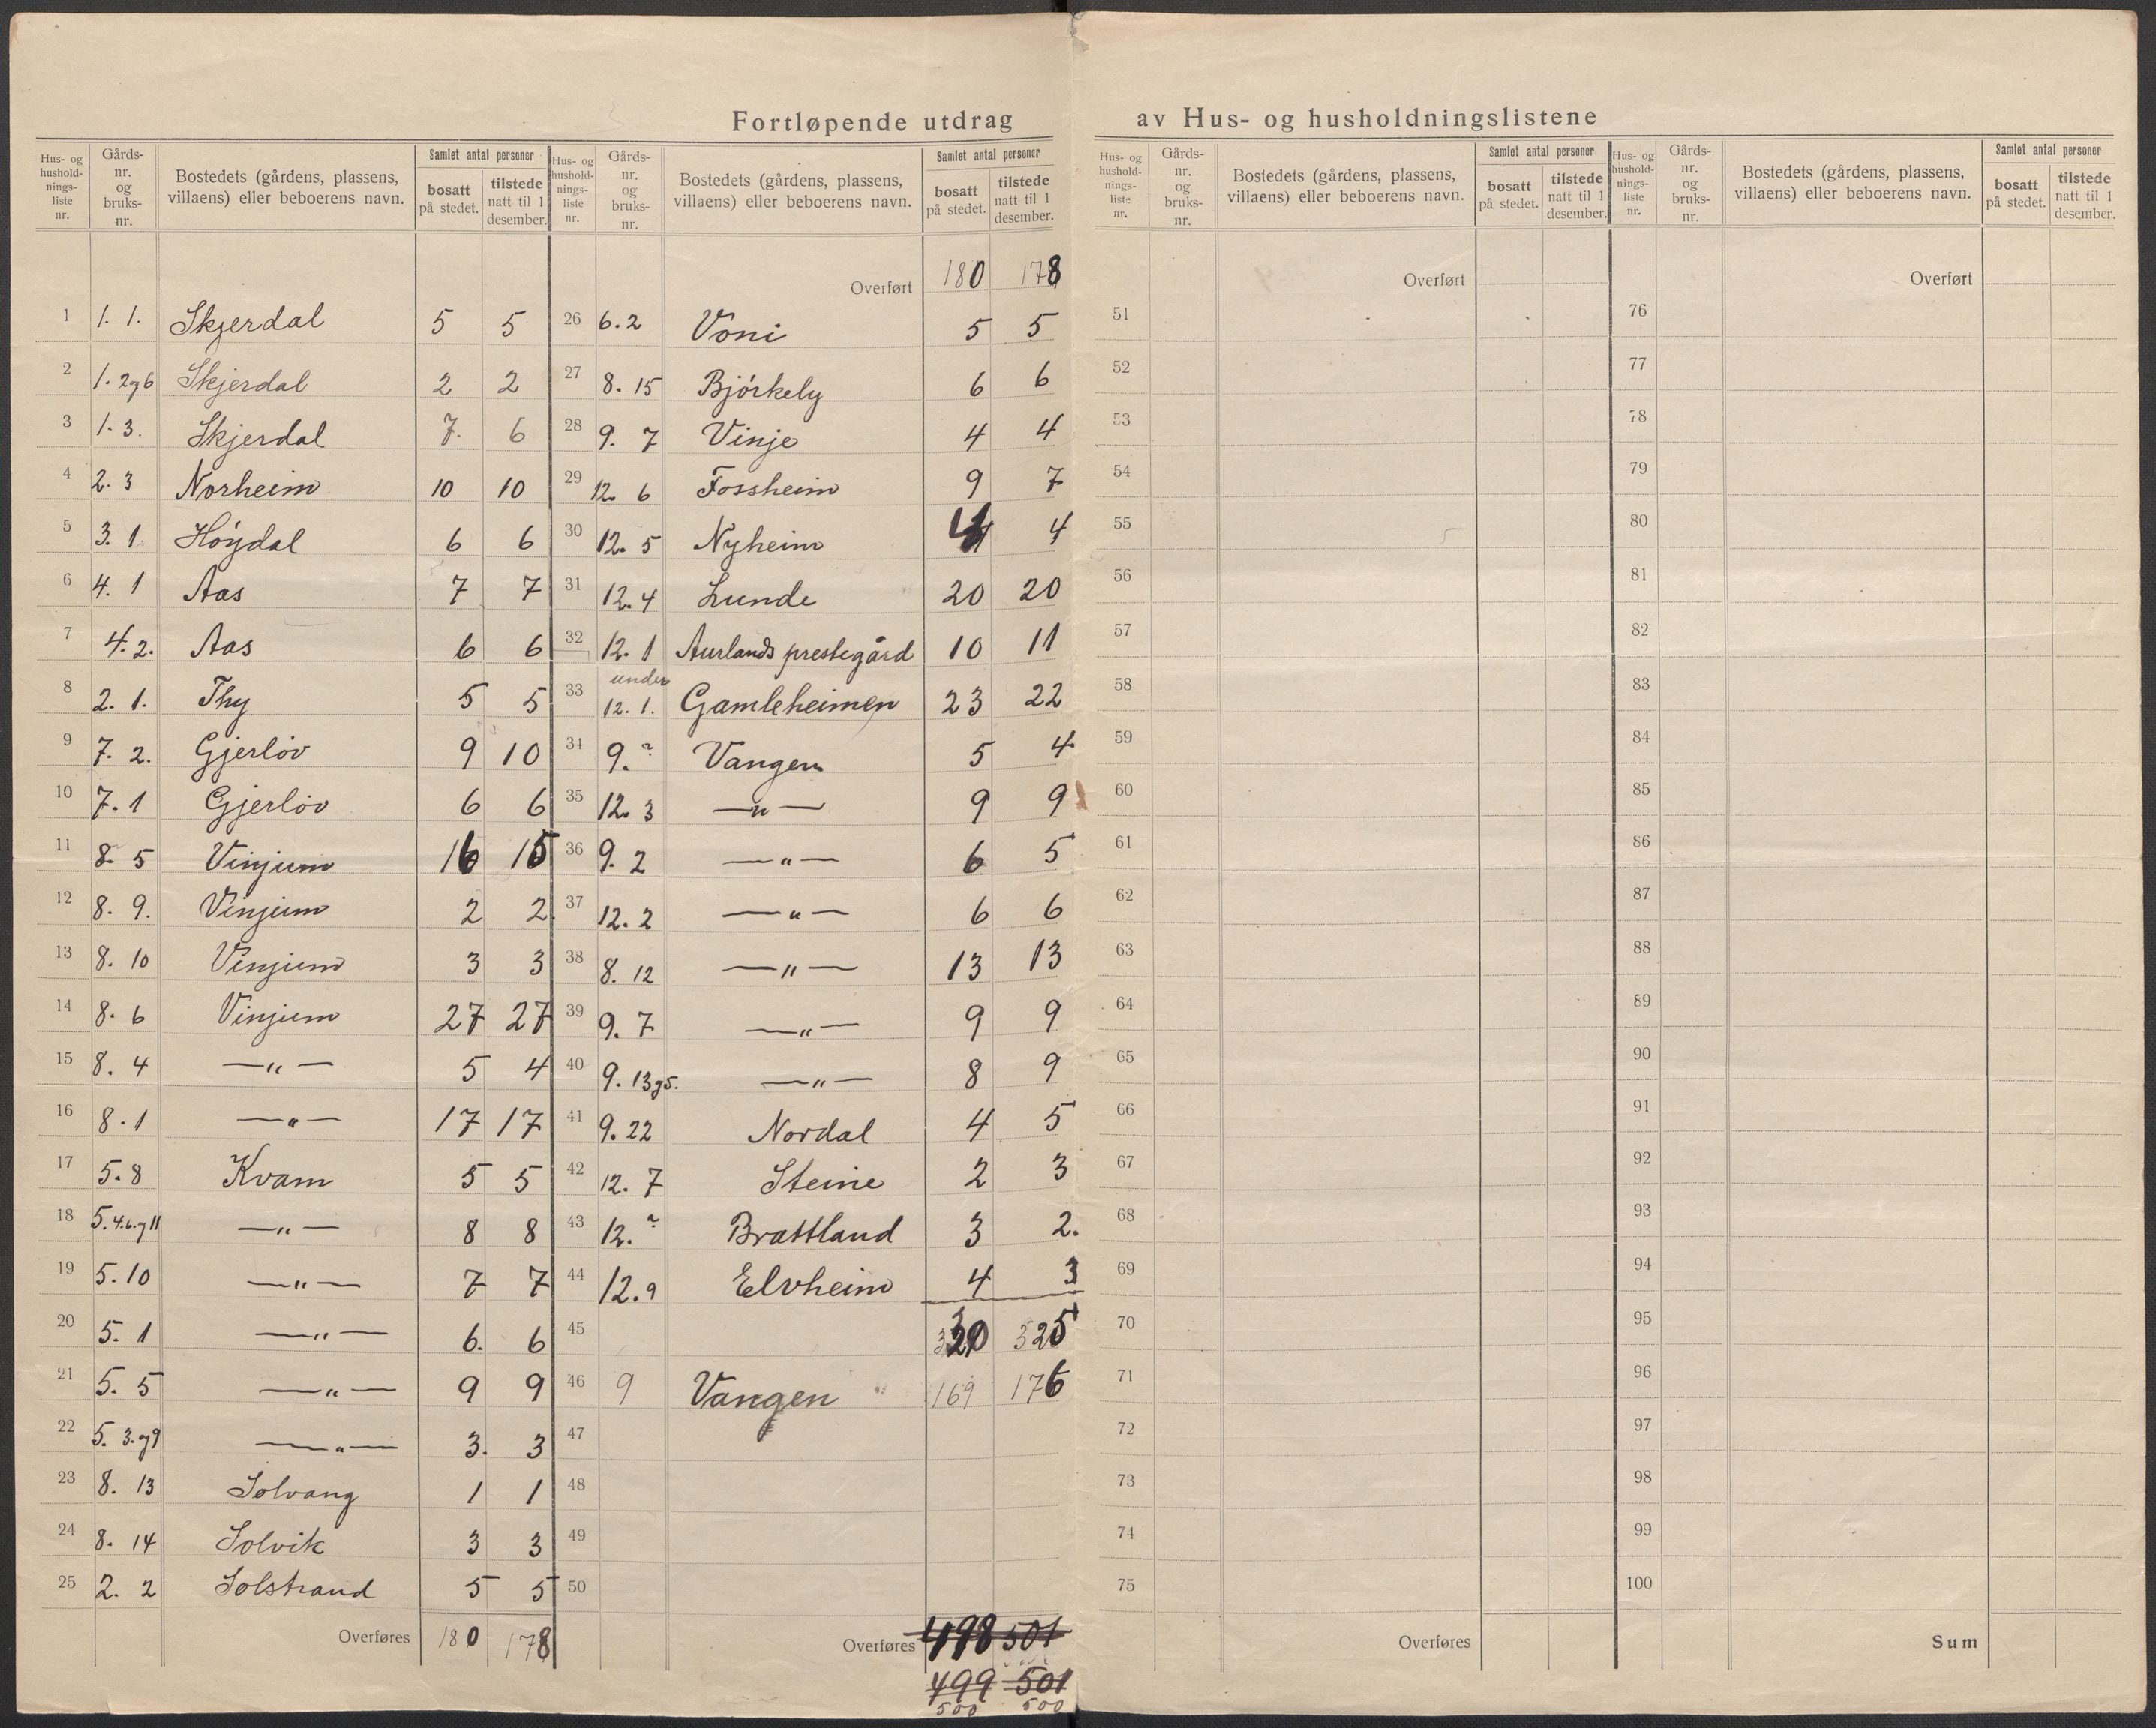 Fortløpende utdrag av Hus- og husholdningslistene
Hus- og husholdnings-liste nr. Gårds-nr. og bruks-nr. Bostedets (gårdens, plassens, villaens) eller beboerens navn. Samlet antal personer bosatt på stedet. tilstede natt til 1 desember.
1 1. 1. Skjerdal 5 5
2 1. 2 og 6 Skjerdal 2 2
3 1. 3. Skjerdal 7. 6
4 2. 3 Norheim 10 10
5 3. 1 Höydal 6 6
6 4. 1 Aas 7 7
7 4. 2. Aas 6 6
8 2. 1. Thy 5 5
9 7. 2. Gjerløv 9 10
10 7. 1 Gjerløv 6 6
11 8. 5 Vinjum 16 15
12 8. 9. Vinjum 2 2
13 8. 10 Vinjum 3 3
14 8. 6 Vinjum 27 27
15 8. 4 —"— 5 4
16 8. 1 —"— 17 17
17 5. 8 Kvam 5 5
18 5. 4. 6. og 11 —"— 8 8
19 5. 10 —"— 7 7
20 5. 1 —"— 6. 6
21 5. 5 —"— 9 9
22 5. 3. og 9 —"— 3. 3
23 8. 13 Solvang 1 1
24 8. 14 Solvik 3 3
25 2. 2 Solstrand 5 5
Overføres 180 178
Hus- og husholdnings-liste nr. Gårds-nr. og bruks-nr. Bostedets (gårdens, plassens, villaens) eller beboerens navn. Samlet antal personer bosatt på stedet. tilstede natt til 1 desember.
Overført 180 178
26 6. 2 Voni 5 5
27 8. 15 Björkely 6 6
28 9. 7 Vinje 4 4
29 12. 6 Fossheim 9 7
30 12. 5 Nyheim 4 4
31 12. 4 Lunde 20 20
32 12. 1 Aurlands prestegård 10 11
33 under 12. 1. Gamleheimen 23 22
34 9. ? Vangen 5 4
35 12. 3 —"— 9 9
36 9. 2 —"— 6 5
37 12. 2 —"— 6 6
38 8. 12 —"— 13 13
39 9. 7 —"— 9 9
40 9. 13 og 5. —"— 8 9
41 9. 22 Nordal 4 5
42 12. 7 Steine 2 3
43 12. ? Brattland 3 2.
44 12. 9 Elvheim 4 3
45 325
46 9 Vangen 169 176
47
48
49
50
Overføres 498 501
499 501
500 500
Hus- og husholdnings-liste nr. Gårds-nr. og bruks-nr. Bostedets (gårdens, plassens, villaens) eller beboerens navn. Samlet antal personer bosatt på stedet. tilstede natt til 1 desember.
Overført
51
52
53
54
55
56
57
58
59
60
61
62
63
64
65
66
67
68
69
70
71
72
73
74
75
Overføres
Hus- og husholdnings-liste nr. Gårds-nr. og bruks-nr. Bostedets (gårdens, plassens, villaens) eller beboerens navn. Samlet antal personer bosatt på stedet. tilstede natt til 1 desember.
Overført
76
77
78
79
80
81
82
83
84
85
86
87
88
89
90
91
92
93
94
95
96
97
98
99
100
Sum